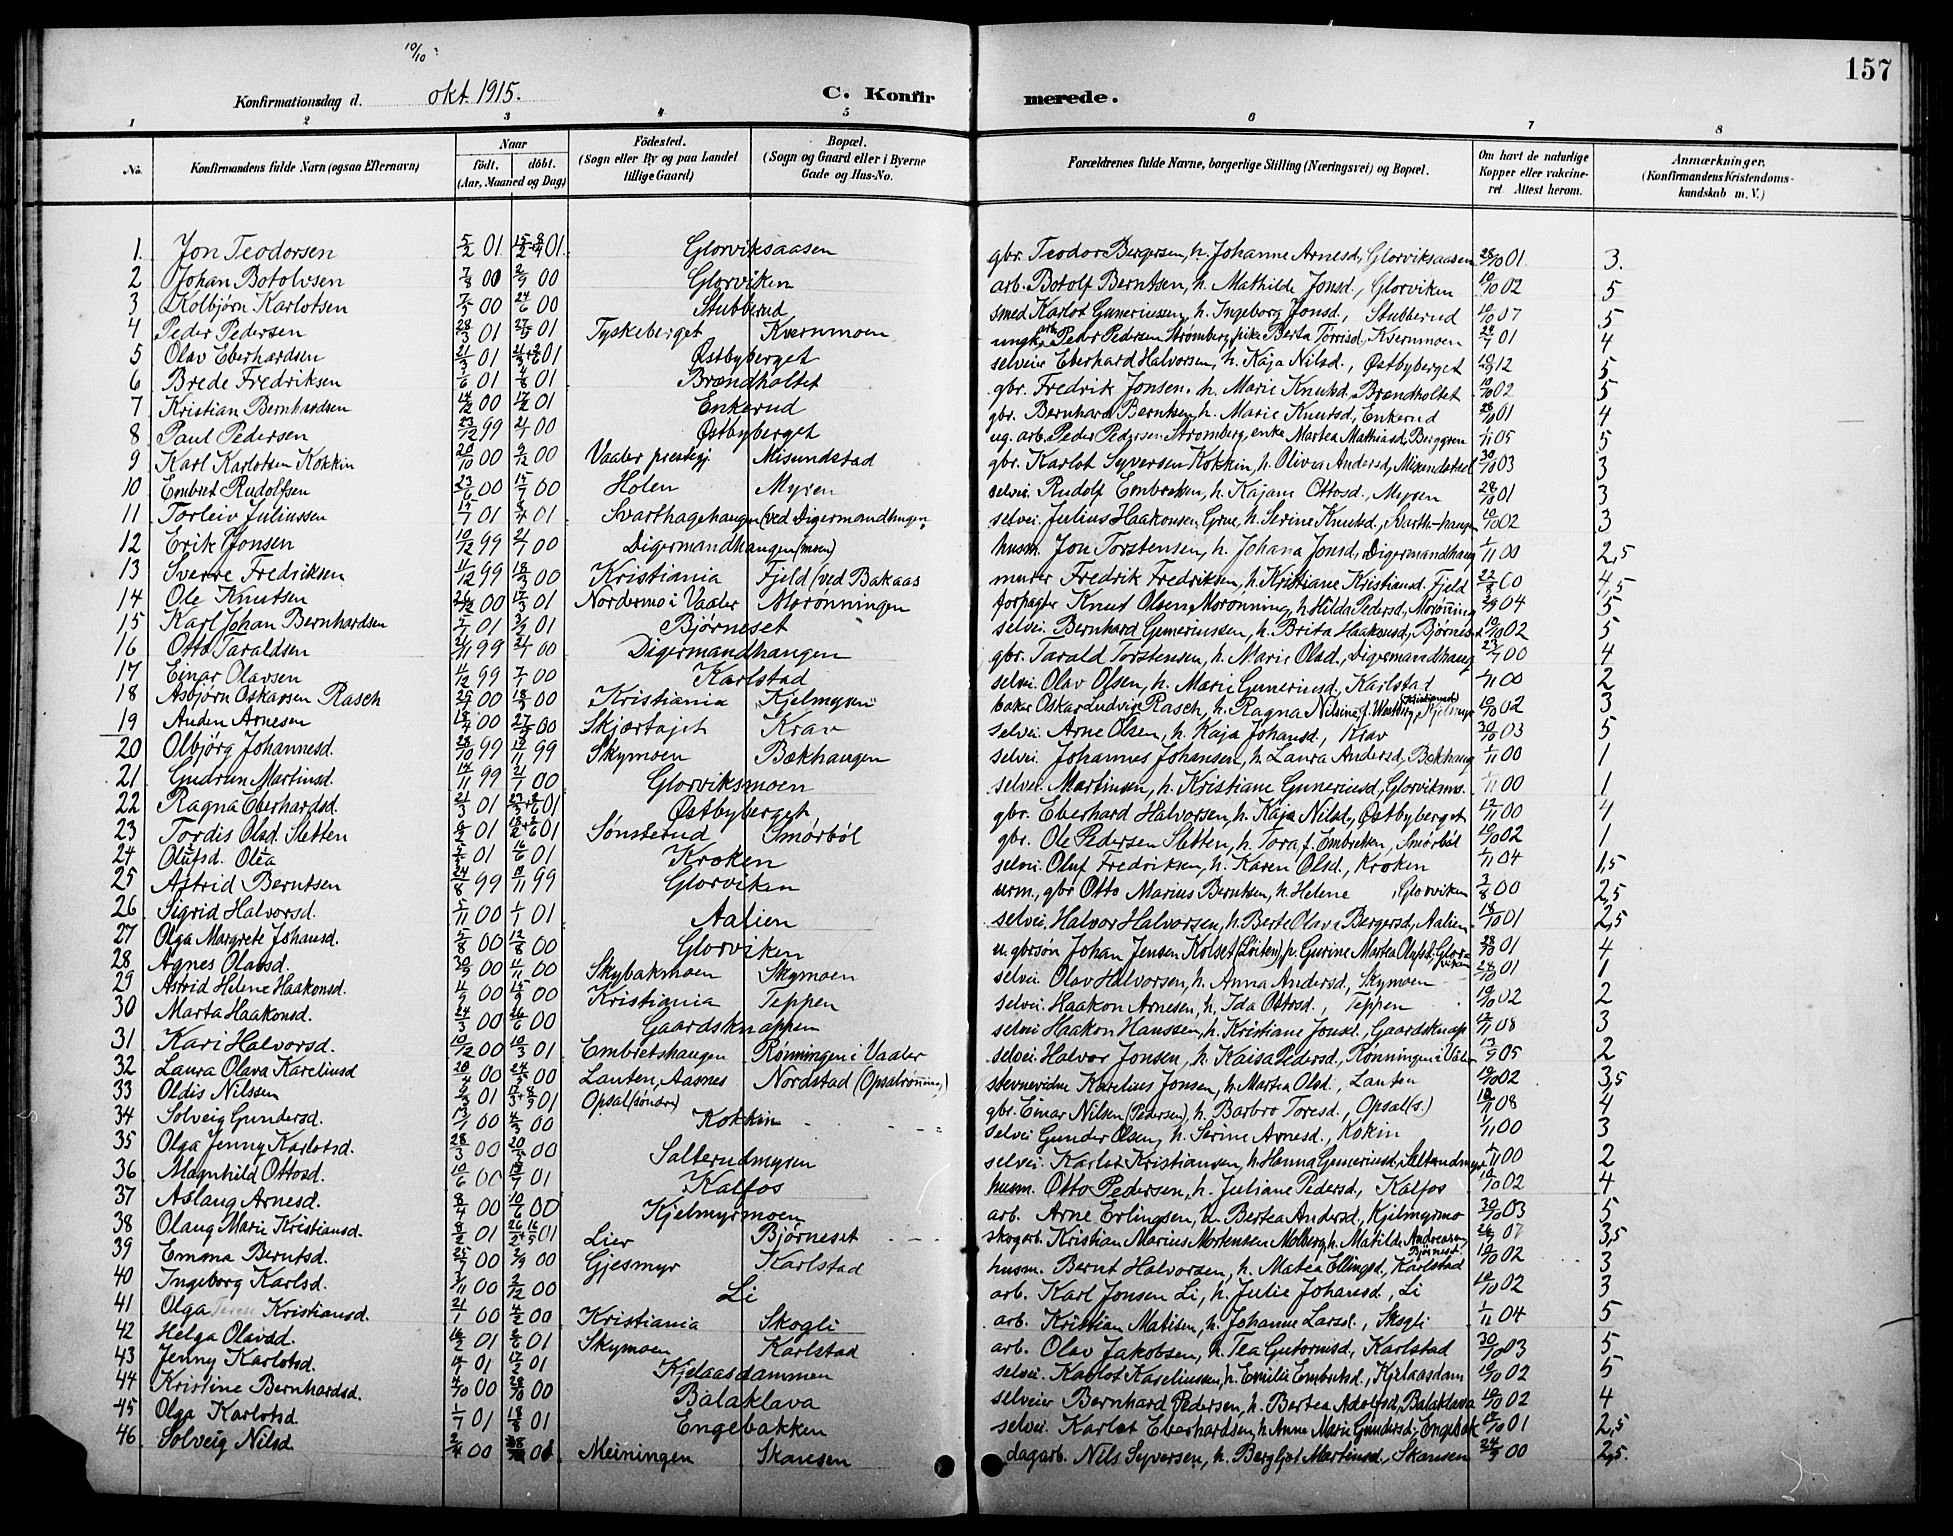 157
10/10
Konfirmationsdag d. okt. 1915. C. Konfirmerede.
1 2 3 4 5 6 7 8
No. Konfirmandens fulde Navn (ogsaa Efternavn) Naar födt. döbt. (Aar, Maaned og Dag) Födested. (Sogn eller By og paa Landet tillige Gaard) Bopæl. (Sogn og Gaard eller i Byerne Gade og Hus-No. Forældrenes fulde Navne, borgerlige Stilling (Næringsvei) og Bopæl. Om havt de naturlige Kopper eller vakcineret. Attest herom. Anmærkninger. (Konfirmandens Kristendomskundskab m. V.)
1. Jon Teodorsen 5/2 01 Glorviksaasen gbr. Teodor Bergersen, h. Johanne Arnesd., Glorviksaasen 28/10 01. 3.
2 Johan Botolvsen 7/8 00 2/9 00 Glorviken arb. Botolf Berntsen, h. Mathilde Jonsd., Glorviken 10/10 02 5
3 Kolbjørn Karlotsen 7/5 00 24/6 00 Stubberud smed Karlot Guneriussen, h. Ingeborg Jonsd., Stubberud 10/10 07 5
4 Peder Pedersen 28/3 01 27/5 01 Tyskeberget Kvernmoen ungk. arb. Peder Pedersen Strømberg, pike Berta Torrisd., Kvernmoen 01 4
5 Olav Eberhardsen 21/3 01 Østbyberget selveier Eberhard Halvorsen, h. Kaja Nilsd., Østbyberget 12 5
6 Brede Fredriksen 3/6 01 4/8 01 Brændholtet gbr. Fredrik Jonsen, h. Marie Knutsd., Brændholtet 10/10 02 5
7 Kristian Bernhardsen 14/12 00 17/2 01 Enkerud gbr. Bernhard Berntsen, h. Marie Knutsd., Enkerud 28/10 01 4
8 Paul Pedersen 23/12 99 2/1 00 Østbyberget ug. arb. Peder Pedersen Strømberg, enke Martea Mathiasd., Berggren 1/11 05 5
9 Karl Karlotsen Kokkin 20/10 00 9/12 00 Vaaler prestegj Misundstad gbr. Karlot Syversen Kokkin, h. Olivia Andersd., Misundstad 30/10 03 3
10 Embret Rudolfsen 23/6 00 15/7 00 Holen Myren selvei. Rudolf Embretsen, h. Kajane Ottosd., Myren 28/10 01 3
11 Torleiv Juliussen 01 01 Svarthagehaugen (ved Digermandhaugen) selvei. Julius Haakonsen Grue, h. Serine Knutsd., Svarth-haugen 10/10 02 3
12 Erik Jonsen 10/12 99 2/1 00 Digermandhaugen (moen) husm. Jon Torstensen, h. Johana Jonsd., Digermandhaug 1/11 00 2,5
13 Sverre Fredriksen 11/12 99 18/3 00 Kristiania Fjeld (ved Bakaas murer Fredrik Fredriksen, h. Kristiane Kristiansd. Fjeld 00 4,5
14 Ole Knutsen 26/12 00 17/3 01 Nordermo i Vaaler Morønningen forpagter Knut Olsen Morønning, h. Hilda Pedersd., Morønning 04 5
15 Karl Johan Bernhardsen 5/7 01 01 Bjørneset selvei. Bernhard Guneriussen, h. Brita Haakonsd., Bjørneset 10/10 02 5
16 Otto Taraldsen 21/11 99 2/1 00 Digermandhaugen gbr. Tarald Torstensen, h. Marie Olsd., Digermandhaug 00 4
17 Einar Olavsen 11/12 99 7/1 00 Karlstad selvei. Olav Olsen, h. Marie Guneriusd., Karlstad 1/11 00 2
18 Asbjørn Oskarsen Rasch 00 18/3 00 Kristiania Kjelmyren baker Oskar Ludvig Rasch, h. Ragna Nilsine f. Westberg (Kristiansd), Kjelmyr 10/10 02 3
19 Anden Arnesen 18/4 00 27/5 00 Skjærtajet Krav selvei. Arne Olsen, h. Kaja Johansd., Krav 30/10 03 5
20 Olbjørg Johannesd. 28/10 99 12/11 99 Skymoen Bækhaugen selvei. Johannes Johansen, h. Laura Andersd., Bækhaug 1/11 00 1
21 Gudrun Martinsd. 14/11 99 2/1 00 Glorviksmoen selvei. Martinsen, h. Kristiane Guneriusd., Glorviksmo. 1/11 00 1
22 Ragna Eberhardsd. 21/3 01 Østbyberget gbr. Eberhard Halvorsen, h. Kaja Nilsd., Østbyberget 12/11 00 4
23 Tordis Olsd. Sletten 01 Sønsterud Smørbøl gbr. Ole Pedersen Sletten, h. Tora f. Embretsen, Smørbøl 10/10 02 1
24 Olufsd. Olea 01 16/6 01 Kroken selvei. Oluf Fredriksen, h. Karen Olsd., Kroken 1/11 04 1,5
25 Astrid Berntsen 24/8 99 99 Glorviken urm., gbr Otto Marius Berntsen, h. Helene , Glorviken 3/8 00 2,5
26 Sigrid Halvorsd. 5/11 00 1/1 01 Aalien selvei. Halvor Halvorsen, h. Berte Olave Bergersd., Aalien 18/10 01 2,5
27 Olga Margrete Johansd. 5/8 00 12/8 00 Glorviken u. gbrsøn Johan Jensen Kolset (Løiten), p. Gurine Martea Olafsd., Glorviken 28/10 01 4
28 Agnes Olavsd. 30/9 00 4/11 00 Skybakmoen Skymoen selvei. Olav Halvorsen, h. Anna Andersd., Skymoen 24/10 01 1
29 Astrid Helene Haakonsd. 4/9 00 15/9 00 Kristiania Teppen selvei. Haakon Arnesen, h. Ida Ottosd., Teppen 10/10 02 2
30 Marta Haakonsd. 24/3 00 26/6 00 Gaardsknappen selvei Haakon Hanssen, h. Kristiane Jonsd., Gaardsknap 12/11 08 3
31 Kari Halvorsd. 10/12 00 10/3 01 Embretshaugen Rønningen i Vaaler selvei. Halvor Jonsen, h. Kaisa Pedersd., Rønningen i Vaaler 13/9 05 2
32 Laura Olava Kareliusd 20/4 00 24/5 00 Lauten, Aasnes Nordstad (Opsalrønning) stevnevidne Karelius Jonsen, h. Martea Olsd., Lauten 10/10 02 3,5
33 Oldis Nilssen 01 01 Opsal (søndre) gbr. Einar Nilsen (Pedersen), h. Barbro Toresd., Opsal (s.) 12/11 08 4
34 Solveig Gundersd. 13/1 00 4/3 00 Kokkin selvei Gunder Olsen, h. Serine Arnesd., Kokin 1/11 00 3
35 Olga Jenny Karlotsd. 28/3 00 20/5 00 Salterudmyren selvei. Karlot Kristiansen, h. Hanna Guneriusd., Salterudmyr 1/11 00 2
36 Magnhild Ottosd. 10/6 00 01 Kalfos husm. Otto Pedersen, h. Juliane Pedersd., Kalfos 10/10 02 4
37 Aslaug Arnesd. 8/4 00 10/6 00 Kjelmyrmoen arb. Arne Erlingsen, h. Bertea Andersd., Kjelmyrmo 30/10 03 5
38 Olaug Marie Kristiansd. 8/2 01 01 Lier Bjørneset skogarb. Kristian Marius Mortensen Molberg, h. Matilde Andreasen Bjørneset 07 3,5
39 Emma Berntsd. 00 2/9 00 Gjesmyr Karlstad husm. Bernt Halvorsen, h. Matea Ellingsd., Karlstad 10/10 02 3
40 Ingeborg Karlsd. 3/11 00 2/12 00 Li arb. Karl Jonsen Li, h. Julie Johansd., Li 10/10 02 3
41 Olga Terese Kristiansd. 21/1 00 4/2 00 Kristiania Skogli arb. Kristian Matisen, h. Johanne Larsd., Skogli 1/11 04 5
42 Helga Olavsd. 16/2 01 01 Skymoen Karlstad arb. Olav Jakobsen, h. Tea Gutormsd., Karlstad 30/10 03 5
43 Jenny Karlotsd. 01 17/2 01 Kjelaasdammen selvei. Karlot Kareliussen, h. Emilie Embretsd., Kjelaasdam 10/10 02 5
44 Kristine Bernhardsd. 4/10 00 28/10 00 Balaklava selveier Bernhard Pedersen, h. Bertea Adolfsd., Balaklava 10/10 02 4
45 Olga Karlotsd 1/7 01 18/8 01 Engebakken selvei. Karlot Eberhardsen, h. Anne Marie Gundersd., Engebak 01 2,5
46 Solveig Nilsd. 00 Meiningen Skansen dagarb. Nils Syversen, h. Bergljot Martinsd., Skansen 00 2,5.